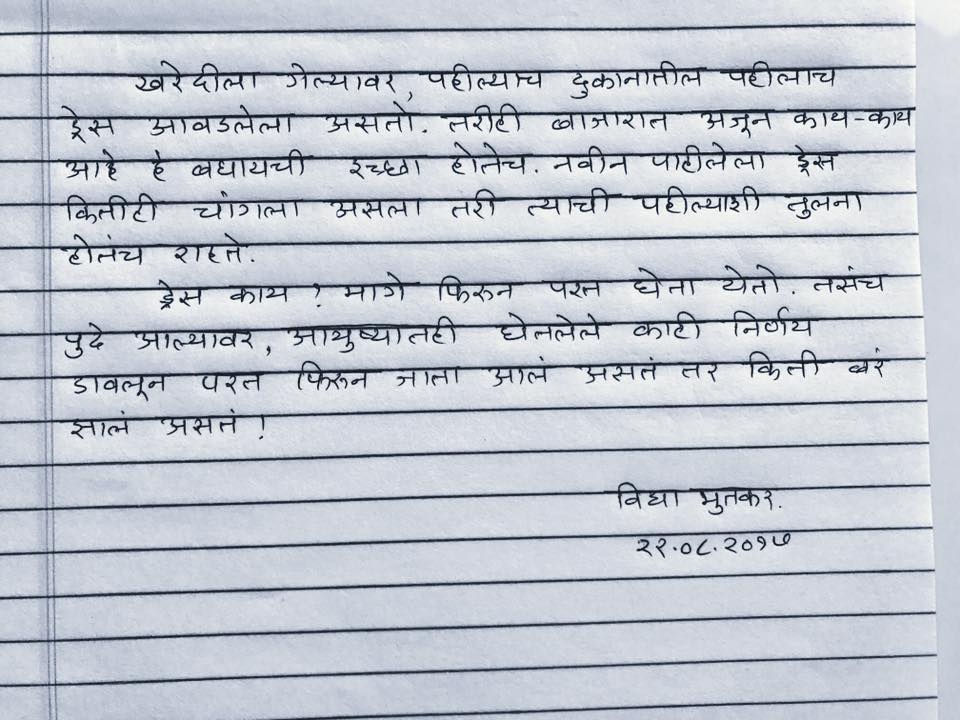 खरेदीला गेल्यावर, पहील्याच दुकानातील पहीलाच
ड्रेस आवडलेला असतो. तरीही बाजारात अजून काय-काय
आहे हे बघायची इच्छा होतेच. नवीन पाहीलेला ड्रेस
कितीही चांगला असला तरी त्याची पहील्याशी तुलना
होतंच राहते.
ड्रेस काय? मागे फिरुन परत घेता येतो. तसंच
पुढे आल्यावर, आयुष्यातही घेतलेले काही निर्णय
डावलून परत फिरुन जाता आलं असतं तर किती बरं
झालं असतं!
विद्या भुतकर.
२२.०८.२०१७